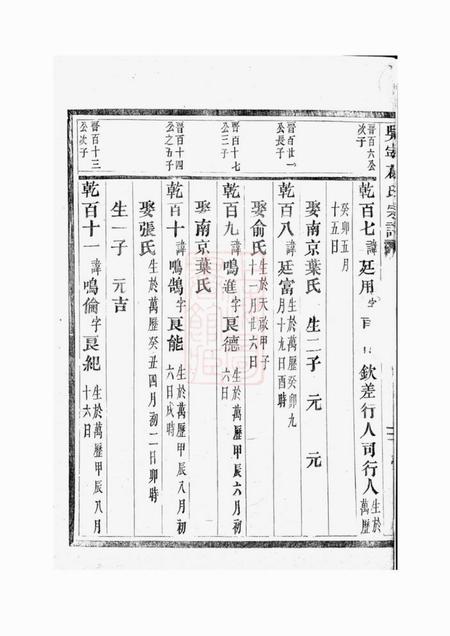 晉百六公次子
乾百七 諱廷用 字 欽差行人司行人 生於萬歷
癸卯五月
十五日
娶南京葉氏 生二子 元 元
晉百廿一公長子
乾百八 諱廷富 生於萬歷癸卯九月十九日酉時
娶俞氏 生於天啟甲子十一月廿六日
晉百十七公三子
乾百九 諱鳴進 字良德 生於萬歷甲辰六月初六日
娶南京葉氏
晉百十四公之五子
乾百十 諱鳴鵠 字良能 生於萬歷甲辰八月初六日戌時
娶張氏 生於萬歷癸丑四月初二日卯時
生一子 元吉
晉百十三公次子
乾百十一 諱鳴倫 字良紀 生於萬歷甲辰八月十六日